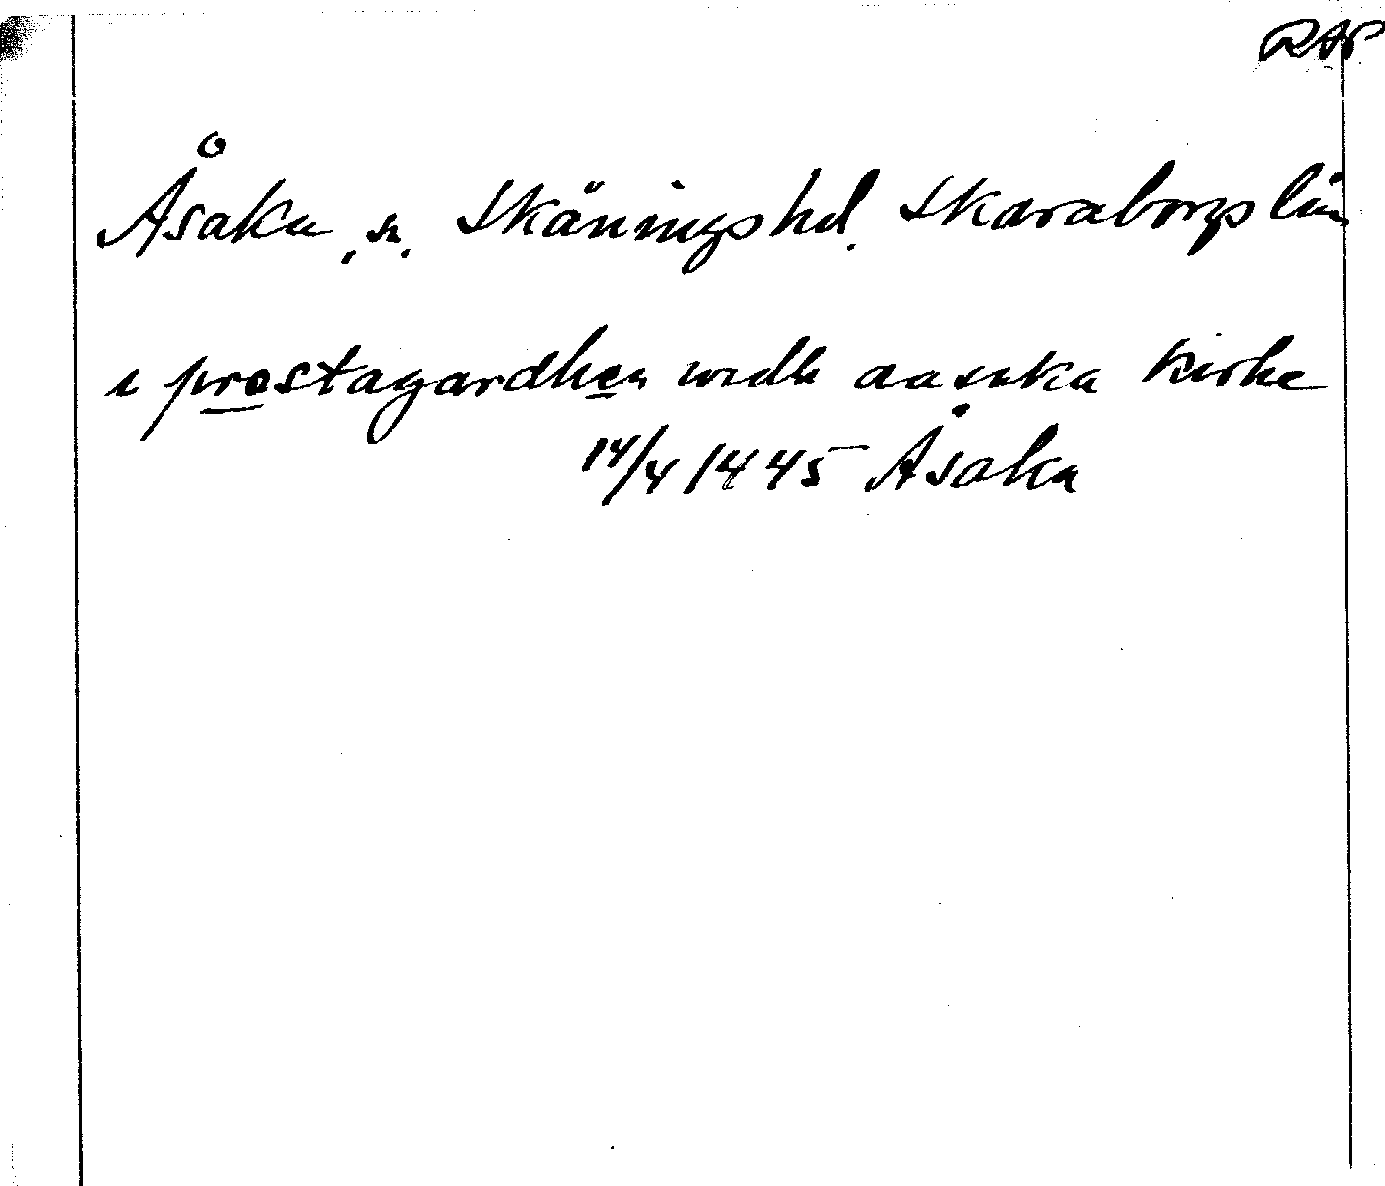 RAP
Åsaka sn. Skänings hd. Skaraborgs län
i prestagardhen widh aasaka kirke
14/4 1445 Åsaka